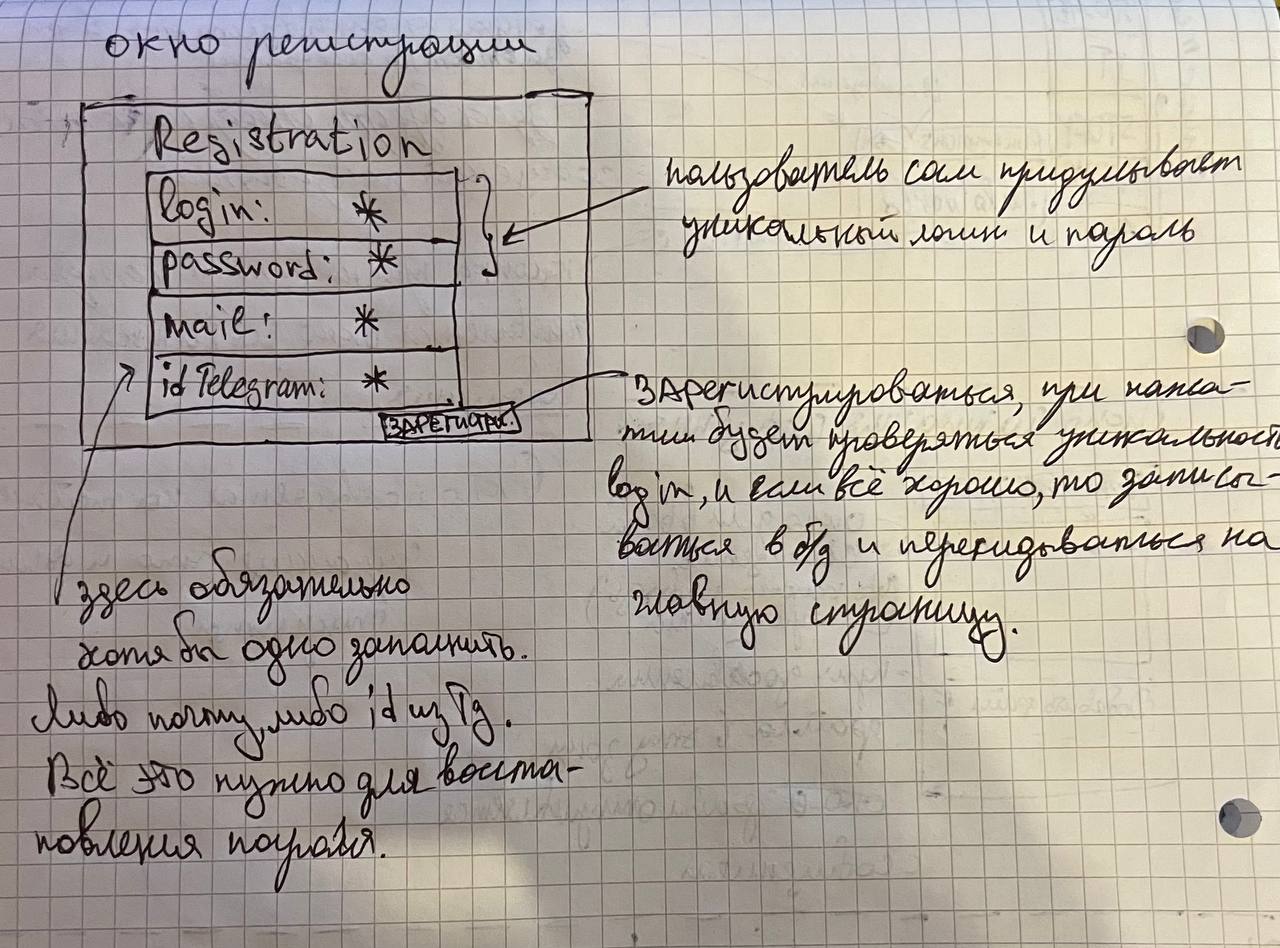 окно регистрации
Registration
login: *
password: *
mail: *
id Telegram: *
ЗАРЕГИСТР.
пользователь сам придумывает
уникальный логин и пароль
ЗАРегистрироваться, при нажа-
тии будет проверяться уникальность
login, и если всё хорошо, то записы-
ваться в б/д и перекидываться на
главную страницу.
здесь обязательно
хотя бы одно заполнить.
Либо почту, либо id из Tg.
Всё это нужно для восста-
новления пароля.